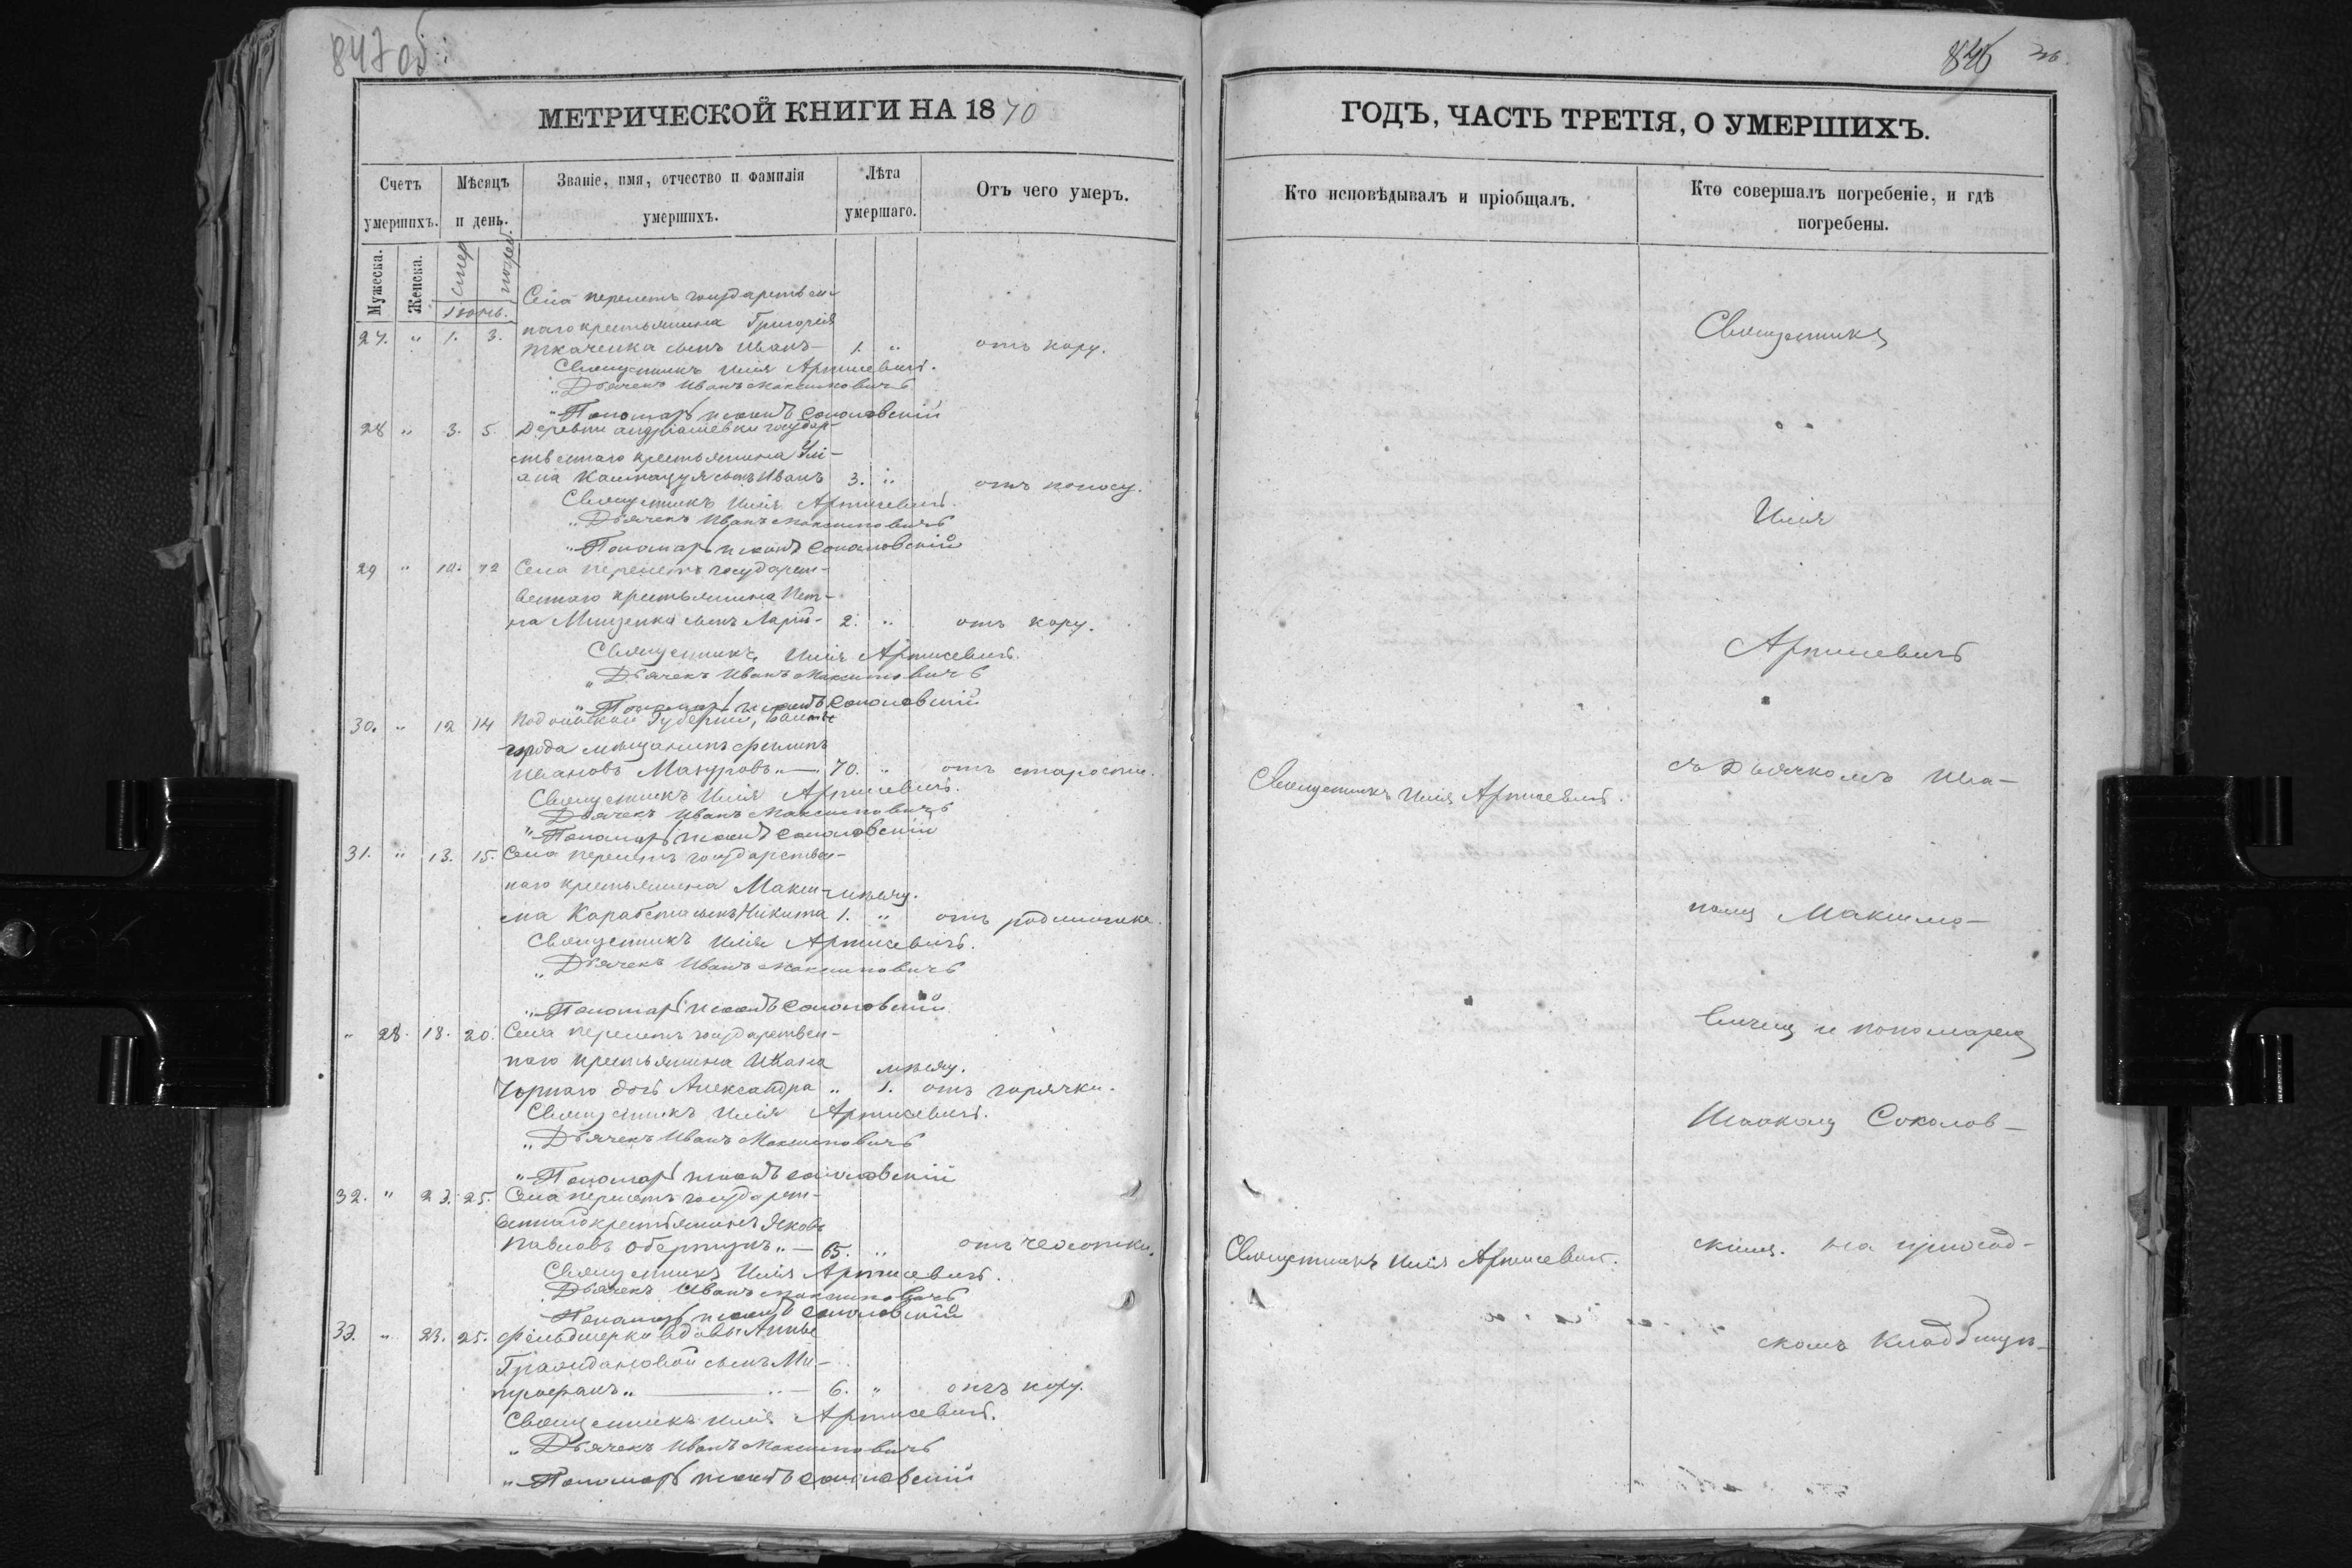 847 об.
846
МЕТРИЧЕСКОЙ КНИГИ НА 1870
Счетъ умершихъ.
Мѣсяцъ и день.
Званіе, имя, отчество и фамилія умершихъ.
Лѣта умершаго.
Отъ чего умеръ.
Мужеска.
Женска.
смер
погреб.
Іюнь.
Села Перелетъ государствен-
27. " 1. 3. наго крестьянина Григорія
Ткаченка сынъ Иванъ — 1. " отъ кору.
Священникъ Илія Артисевичъ.
" Дьячекъ Иванъ Максимовичъ
" Пономарь Исаакъ Соколовскій
28 " 3. 5. Деревни Андріашевки государ-
ственнаго крестьянина Улі-
ана сынъ Иванъ 3. " отъ поносу.
Священникъ Илія Артисевичъ.
" Дьячекъ Иванъ Максимовичъ
" Пономарь Исаакъ Соколовскій
29 " 10. 12 Села Перелетъ государст-
веннаго крестьянина Пет-
ра Мищенка сынъ Ларіи- 2. " отъ кору.
Священникъ Илія Артисевичъ.
" Дьячекъ Иванъ Максимовичъ
" Пономарь Исаакъ Соколовскій
30. " 12 14 Подольской Губерніи, Балты
города мещанинъ Филипъ
Ивановъ Мазуровъ " — 70. " отъ старости.
Священникъ Илія Артисевичъ.
Дьячекъ Иванъ Максимовичъ
" Пономарь Исаакъ Соколовскій
31. " 13. 15. Села Перелетъ государствен-
наго крестьянина Макси-
ма сынъ Никита 1. мѣсяц. " отъ родимчика.
Священникъ Илія Артисевичъ.
" Дьячекъ Иванъ Максимовичъ
" Пономарь Исаакъ Соколовскій
" 28. 18. 20. Села Перелетъ государствен-
наго крестьянина Ивана
Чорнаго дочь Александра " 1. мѣсяц. отъ горячки.
Священникъ Илія Артисевичъ.
" Дьячекъ Иванъ Максимовичъ
" Пономарь Исаакъ Соколовскій
32. " 23. 25. Села Перелетъ государст-
веннаго крестьянинъ Яковъ
Павловъ " — 65. " отъ чесотки.
Священникъ Илія Артисевичъ.
Дьячекъ Иванъ Максимовичъ
Пономарь Исаакъ Соколовскій
33. " 23. 25. Фельдшерки вдовы Анны
Граждановой сынъ Ми-
трофанъ " — 6. " отъ кору.
Священникъ Илія Артисевичъ.
" Дьячекъ Иванъ Максимовичъ
" Пономарь Исаакъ Соколовскій
ГОДЪ, ЧАСТЬ ТРЕТІЯ, О УМЕРШИХЪ.
Кто исповѣдывалъ и пріобщалъ.
Кто совершалъ погребеніе, и гдѣ погребены.
Священникъ Илія Артисевичъ.
Священникъ Илія Артисевичъ.
Священникъ
Илія
Артисевичъ
съ Дьячкомъ Ива-
номъ Максимо-
вичемъ и пономаремъ
Исаакомъ Соколов-
скимъ. на приход-
скомъ Кладбищѣ